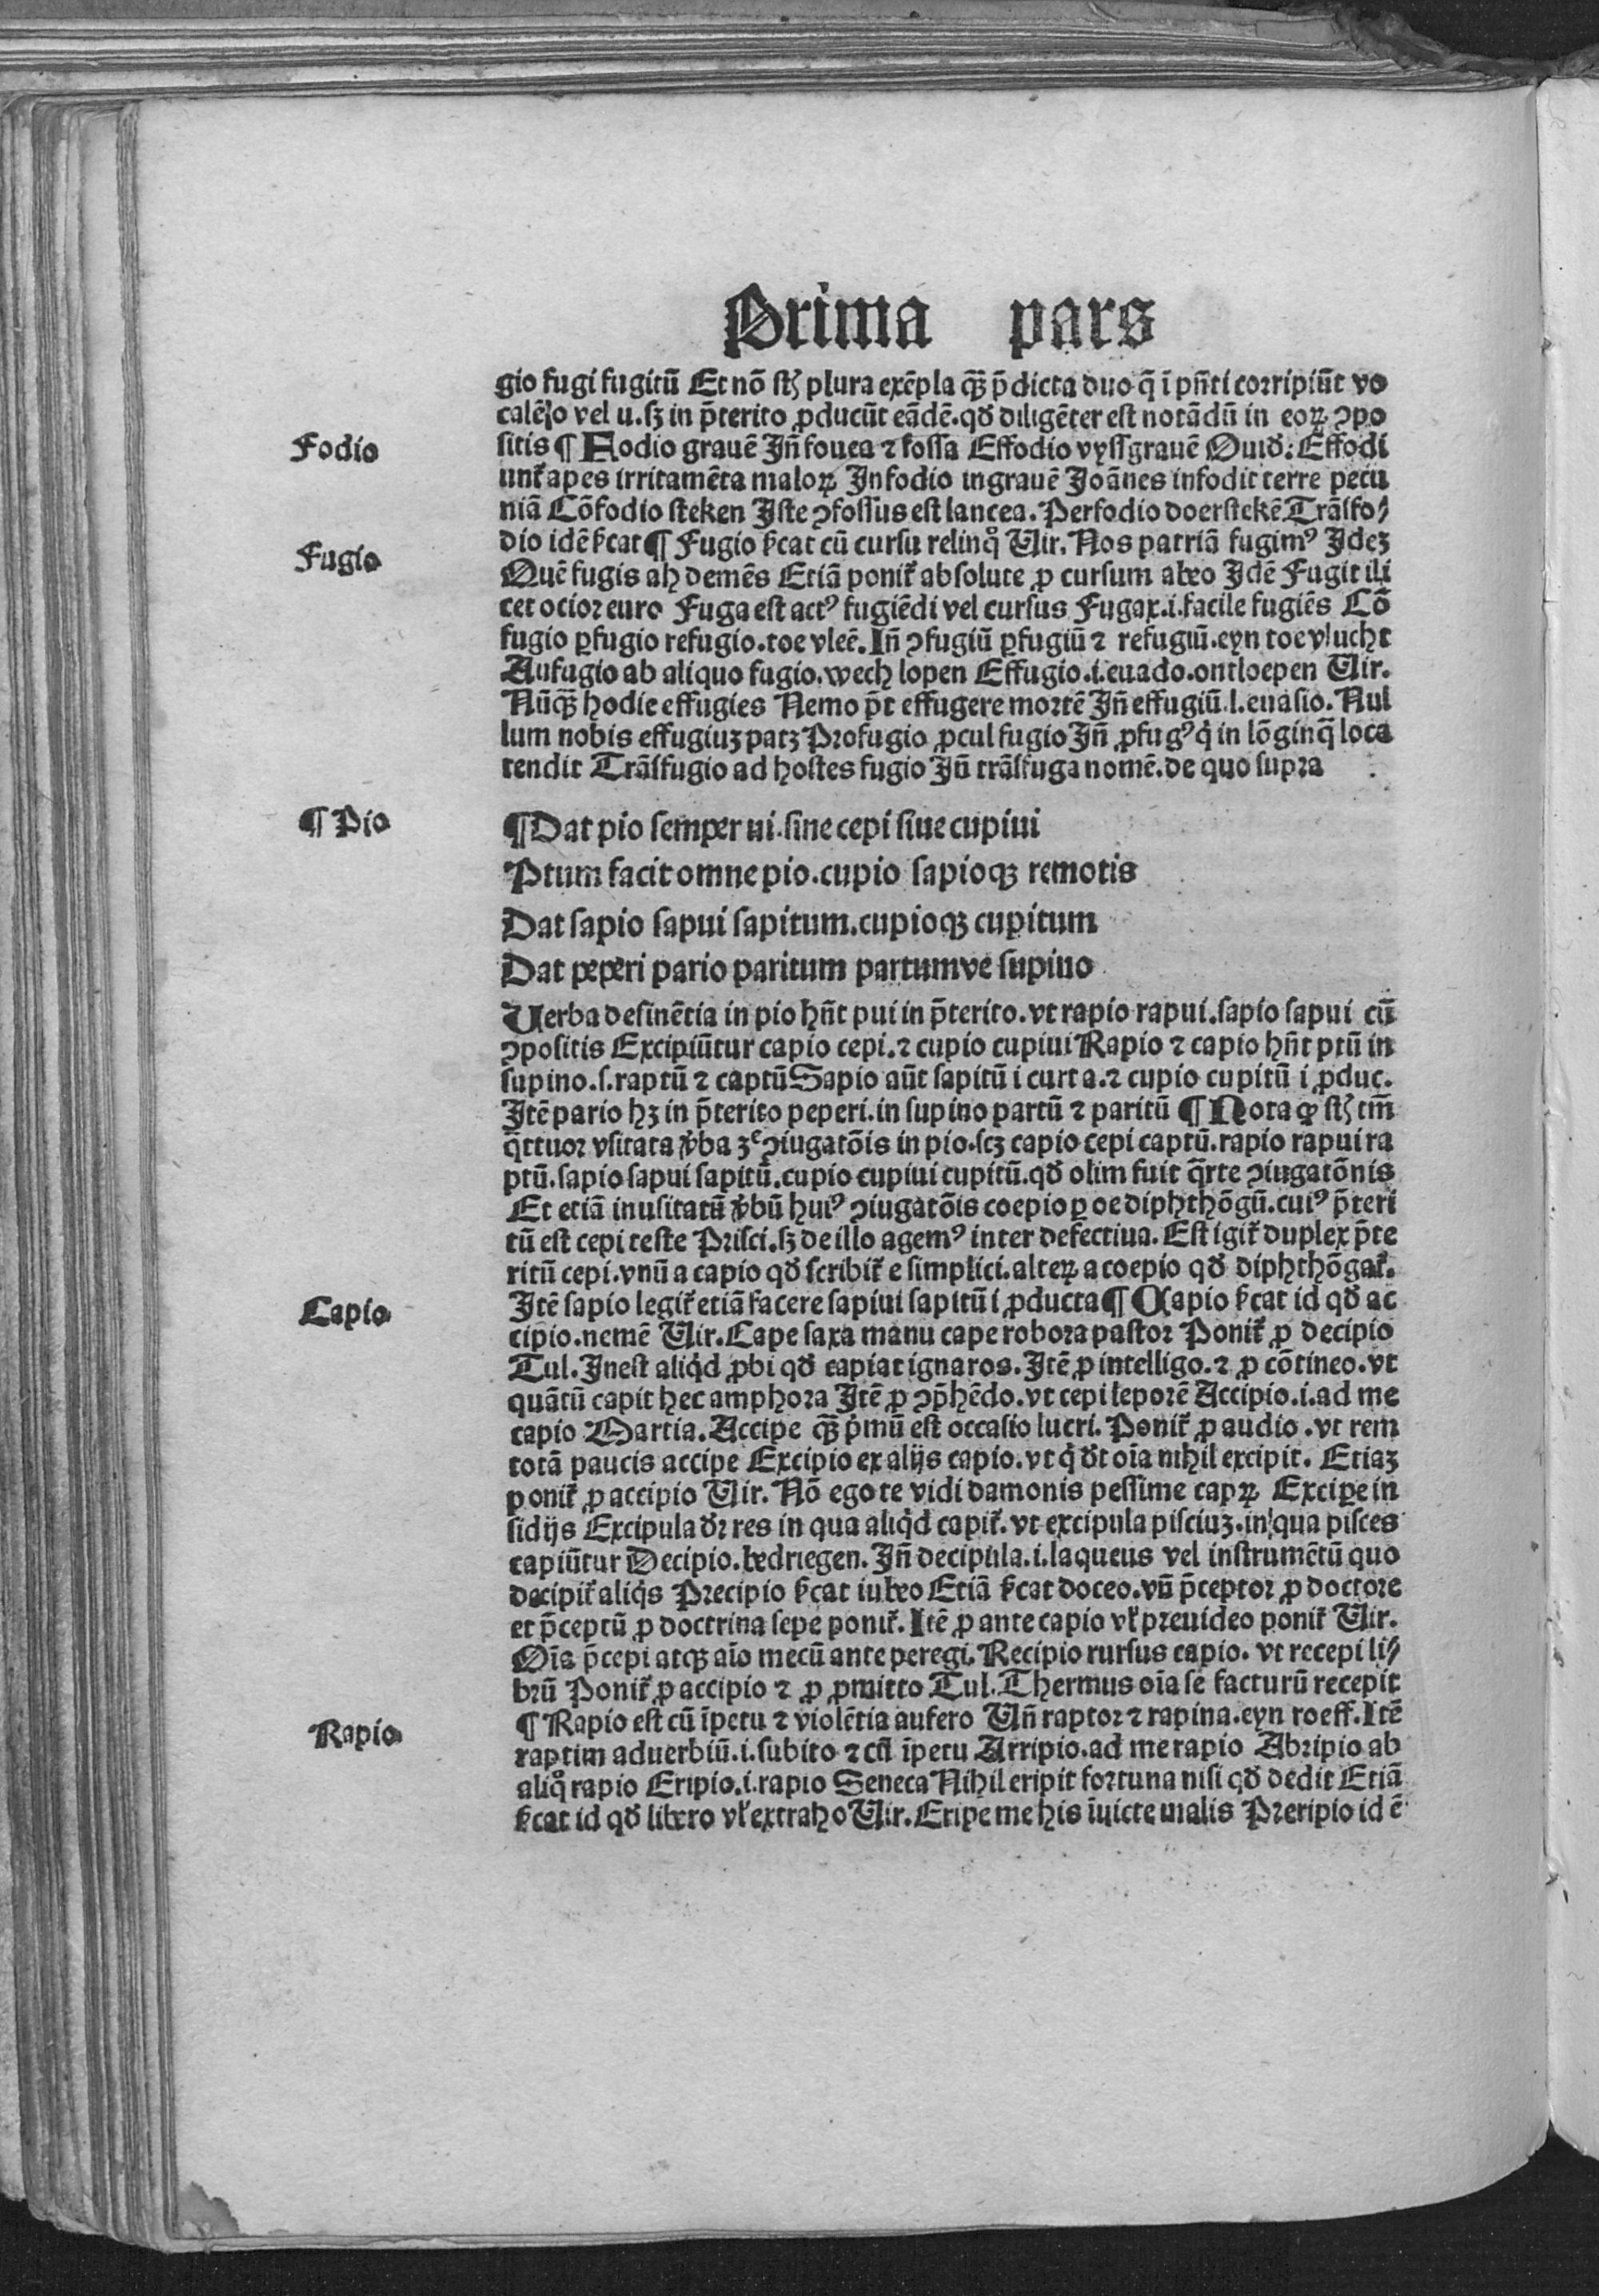 Prima pars
gio fugi fugitū Et nō sūt plura exēpla q̄ꝫ p̄dicta duo q̄ ī pn̄ti corripiūt vo
calē o vel u. sꝫ in p̄terito ꝓducūt eādē. qđ diligēter est notādū in eoꝝ ↄpo
Fodio
sitis ¶ Fodio gravē Jn̄ fouea ⁊ fossa Effodio vyssgrauē Ouiđ: Effodi
unt̄ apes irritamēta maloꝝ Infodio ingrauē Joānes infodit terre pecu
niā Cōfodio steken Iste ↄfossus est lancea. Perfodio doerstekē Trāsfo⸗
Fugio
dio idē s̄cat ¶ Fugio s̄cat cū cursu relinqͦ Uir. Nos patriā fugimꝰ Ideꝫ
Quē fugis ah demēs Etiā ponit̄ absolute ꝓ cursum abeo Idē Fugit ili
cet ocior euro Fuga est actꝰ fugiēdi vel cursus Fugax .i. facile fugiēs Cō
fugio ꝑfugio refugio. toe vleē. In̄ ↄfugiū ꝑfugiū ⁊ refugiū. eyn toevlucht
Aufugio ab aliquo fugio. wech lopen Effugio .i. euado. ontloepen Uir.
Nūq̄ꝫ hodie effugies Nemo p̄t effugere mortē Jn̄ effugiū .i. euasio. Nul
lum nobis effugiuꝫ patꝫ Profugio ꝓcul fugio Jn̄ ꝓfugꝰ qͥ in lōginq̄ loca
tendit Trāsfugio ad hostes fugio Jn̄ trāsfuga nomē. de quo supra
¶ Pio
¶ Dat pio semper ui. sine cepi siue cupiui
Ptum facit omne pio. cupio sapioqꝫ remotis
Dat sapio sapui sapitum. cupioqꝫ cupitum
Dat peperi pario paritum partumve supino
Uerba desinētia in pio hn̄t pui in p̄terito. vt rapio rapui. sapio sapui cū
ↄpositis Excipiūtur capio cepi. ⁊ cupio cupiui Rapio ⁊ capio hn̄t ptū in
supino. s. raptū ⁊ captū Sapio aūt sapitū i curta. ⁊ cupio cupitū i ꝓduc.
Itē pario hꝫ in p̄terito peperi. in supino partū ⁊ paritū ¶ Nota ꝙ sūt tm̄
q̄ttuor vsitata v̄ba ꝫͤ ↄiugatōis in pio. scꝫ capio cepi captū. rapio rapui ra
ptū. sapio sapui sapitū. cupio cupiui cupitū. qđ olim fuit q̄rte ↄiugatōnis
Et etiā inusitatū v̄bū huiꝰ ↄiugatōis coepio ꝑ oe diphthōgū. cuiꝰ p̄teri
tū est cepi teste Prisci. sꝫ de illo agemꝰ inter defectiua. Est igit̄ duplex p̄te
ritū cepi. vnū a capio qđ scribit̄ e simplici. alteꝝ a coepio qđ diphthōgat̄.
Capio
Itē sapio legit̄ etiā facere sapiui sapitū i ꝓducta ¶ Capio s̄cat id qđ ac
cipio. nemē Uir. Cape saxa manu cape robora pastor Ponit̄ ꝓ decipio
Tul. Inest aliqͥd ꝓbi qđ capiat ignaros. Itē ꝓ intelligo. ⁊ ꝓ cōtineo. vt
quātū capit hec amphora Itē ꝓ ↄp̄hēdo. vt cepi leporē Accipio .i. ad me
capio Martia. Accipe q̄ꝫ pͥmū est occasio lucri. Ponit̄ ꝓ audio. vt rem
totā paucis accipe Excipio ex alijs capio. vt qͥ đt oīa nihil excipit. Etiaꝫ
ponit̄ ꝓ accipio Uir. Nō ego te vidi damonis pessime capꝝ Excipe in
sidijs Excipula đr res in qua aliqͥd capit̄. vt excipula pisciuꝫ. in qua pisces
capiūtur Decipio. bedriegen. Jn̄ decipula .i. laqueus vel instrumētū quo
decipit̄ aliqͥs Precipio s̄cat iubeo Etiā s̄cat doceo. vn̄ p̄ceptor ꝓ doctore
et p̄ceptū ꝓ doctrina sepe ponit̄. Itē ꝓ ante capio vꝉ preuideo ponit̄ Uir.
Oīa p̄cepi atqꝫ aīo mecū ante peregi. Recipio rursus capio. vt recepi li⸗
brū Ponit̄ ꝓ accipio ⁊ ꝓ ꝓmitto Tul. Thermus oīa se facturū recepit
Rapio
¶ Rapio est cū īpetu ⁊ violētia aufero Un̄ raptor ⁊ rapina. eyn roeff. Itē
raptim aduerbiū .i. subito ⁊ cū īpetu Arripio. ad me rapio Abripio ab
aliqͦ rapio Eripio .i. rapio Seneca Nihil eripit fortuna nisi qđ dedit Etiā
s̄cat id qđ libero vꝉ extraho Uir. Eripe me his īuicte malis Preripio id ē